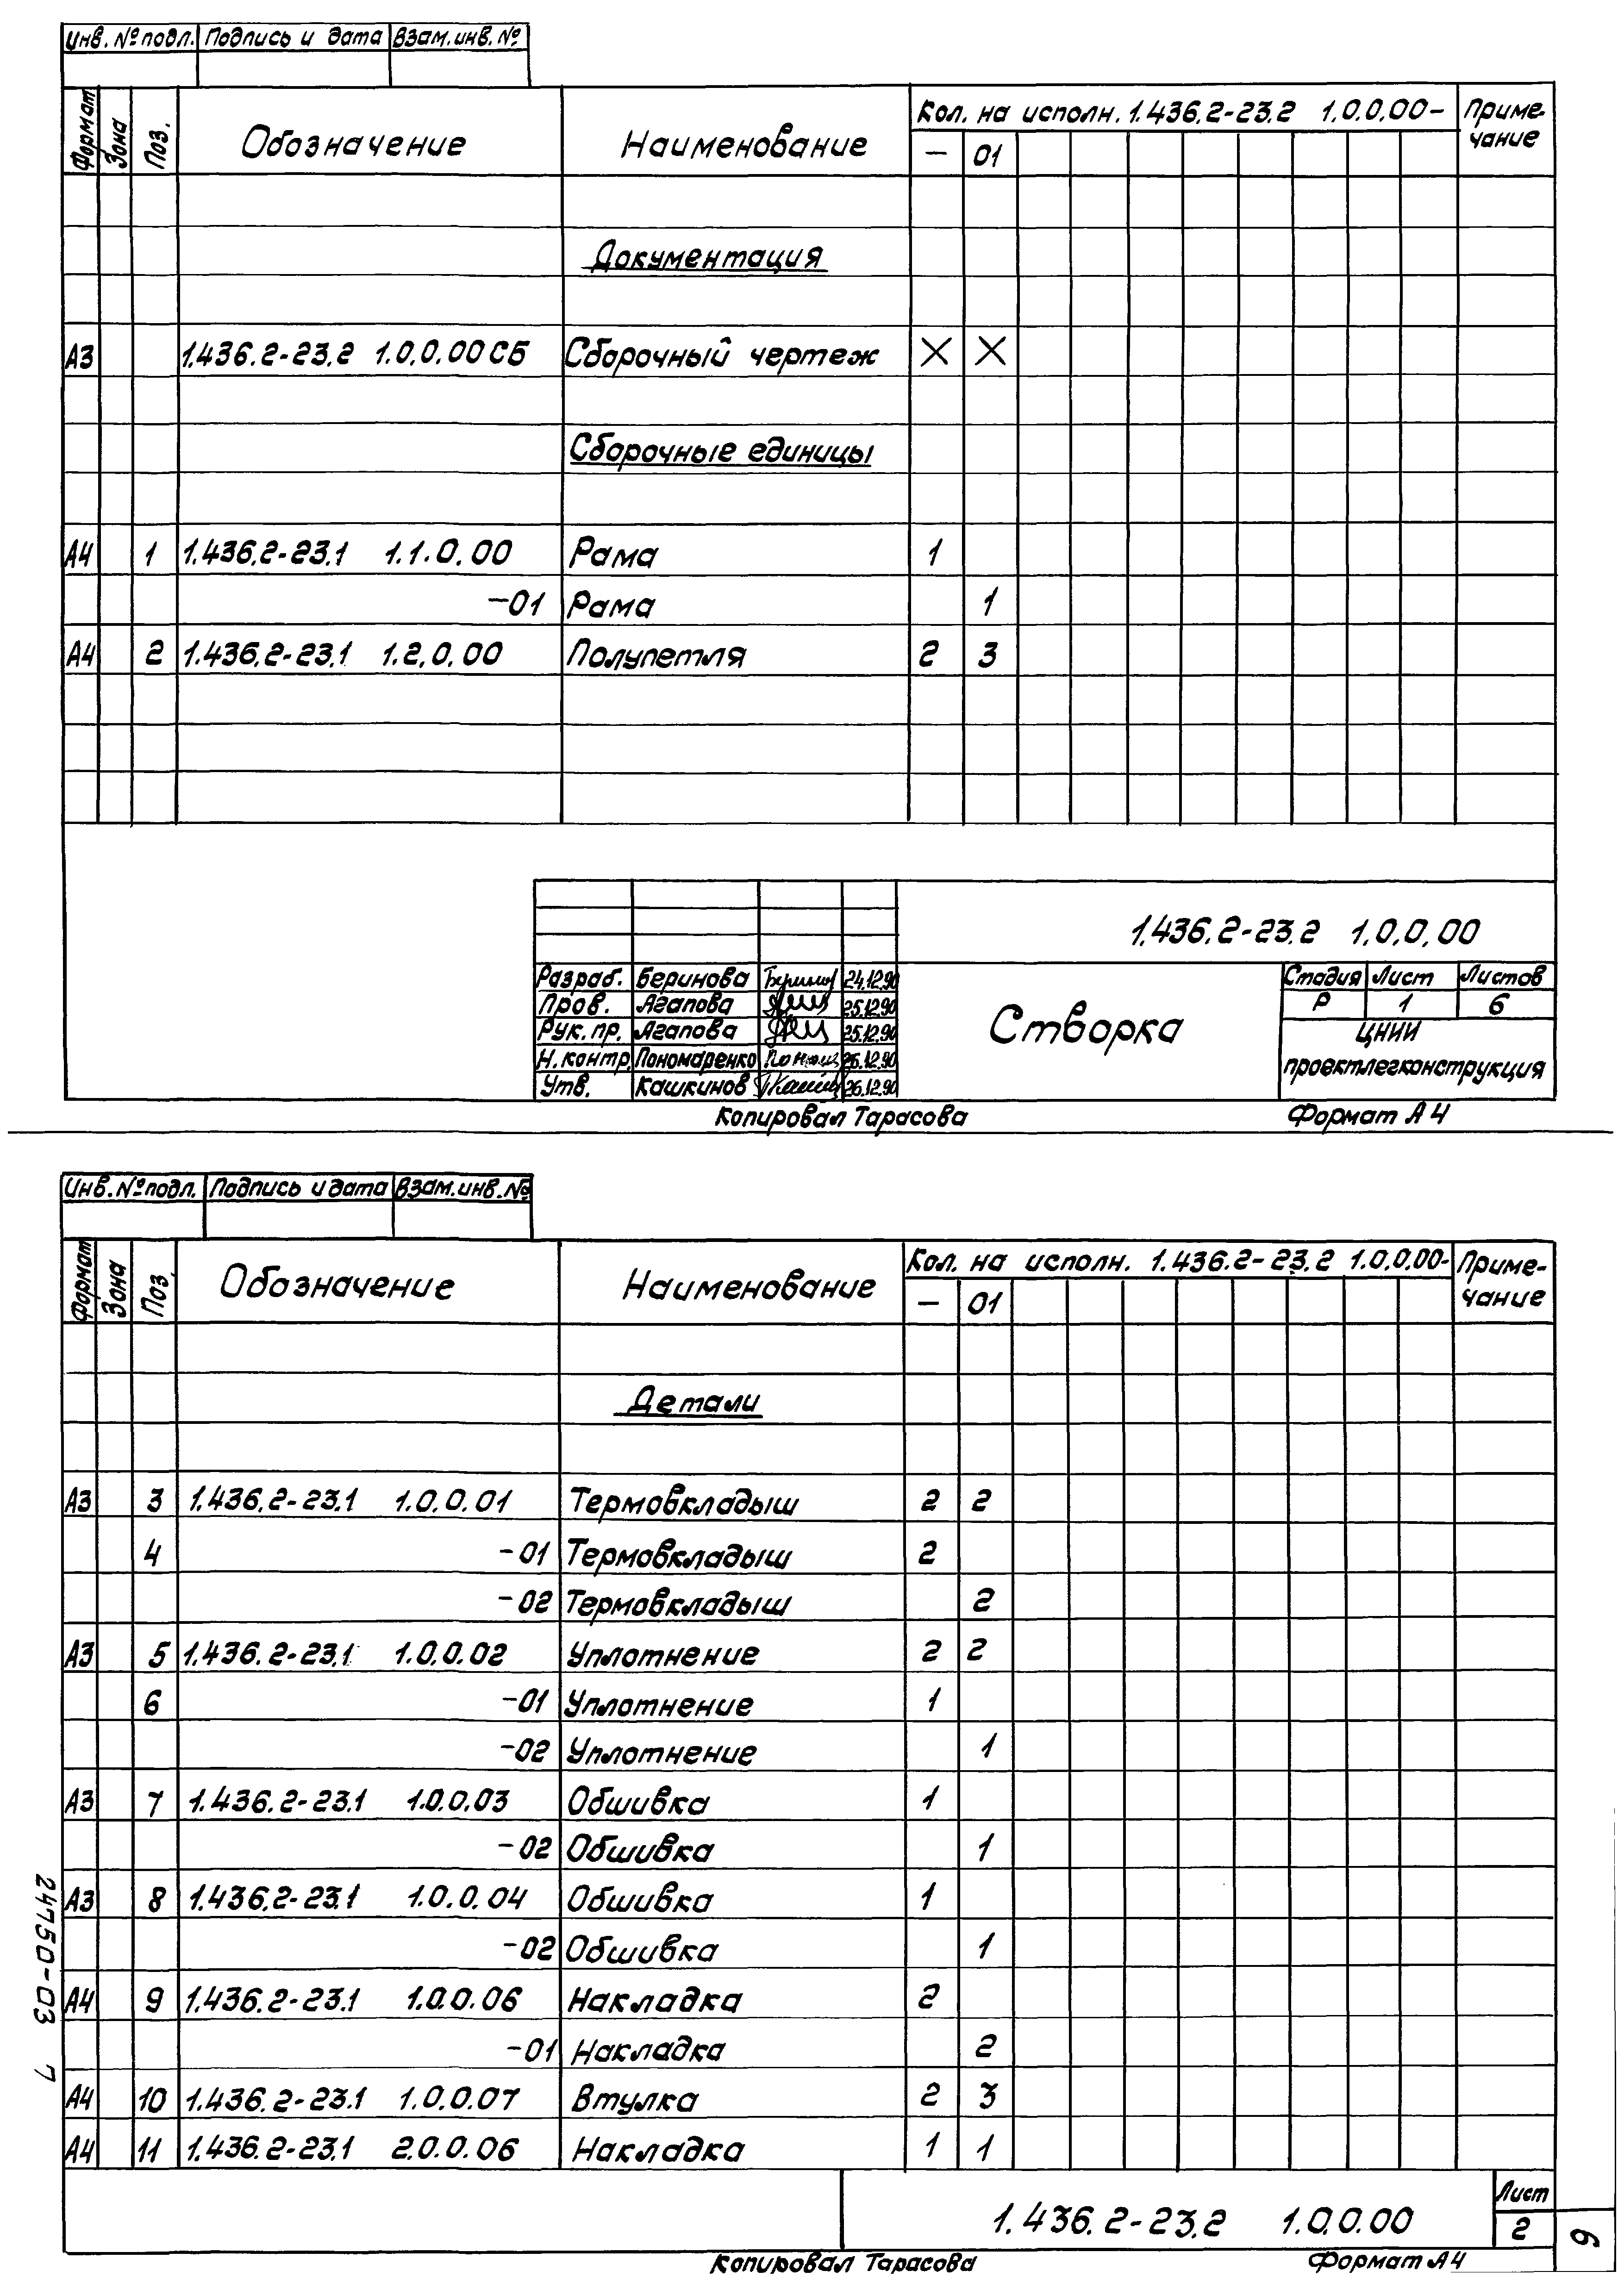 Инв. № подл. Подпись и дата Взам. инв. №
Формат Зона Поз. Обозначение Наименование Кол. на исполн. 1.436.2-23.2 1.0.0.00- Приме-
чание
— 01
Документация
А3 1.436.2-23.2 1.0.0.00СБ Сборочный чертеж X X
Сборочные единицы
А4 1 1.436.2-23.1 1.1.0.00 Рама 1
-01 Рама 1
А4 2 1.436.2-23.1 1.2.0.00 Полупетля 2 3
1.436.2-23.2 1.0.0.00
Разраб. Беринова 24.12.90
Пров. Агапова 25.12.90
Рук. пр. Агапова 25.12.90
Н. контр. Пономаренко 26.12.90
Утв. Кашкинов 26.12.90
Створка
Стадия Лист Листов
Р 1 6
ЦНИИ
проектлегконструкция
Копировал Тарасова Формат А4
Инв. № подл. Подпись и дата Взам. инв. №
Формат Зона Поз. Обозначение Наименование Кол. на исполн. 1.436.2-23.2 1.0.0.00- Приме-
чание
— 01
Детали
А3 3 1.436.2-23.1 1.0.0.01 Термовкладыш 2 2
4 -01 Термовкладыш 2
-02 Термовкладыш 2
А3 5 1.436.2-23.1 1.0.0.02 Уплотнение 2 2
6 -01 Уплотнение 1
-02 Уплотнение 1
А3 7 1.436.2-23.1 1.0.0.03 Обшивка 1
-02 Обшивка 1
А3 8 1.436.2-23.1 1.0.0.04 Обшивка 1
-02 Обшивка 1
А4 9 1.436.2-23.1 1.0.0.06 Накладка 2
-01 Накладка 2
А4 10 1.436.2-23.1 1.0.0.07 Втулка 2 3
А4 11 1.436.2-23.1 2.0.0.06 Накладка 1 1
1.436.2-23.2 1.0.0.00
Лист
2
6
Копировал Тарасова Формат А4
24750-03 7